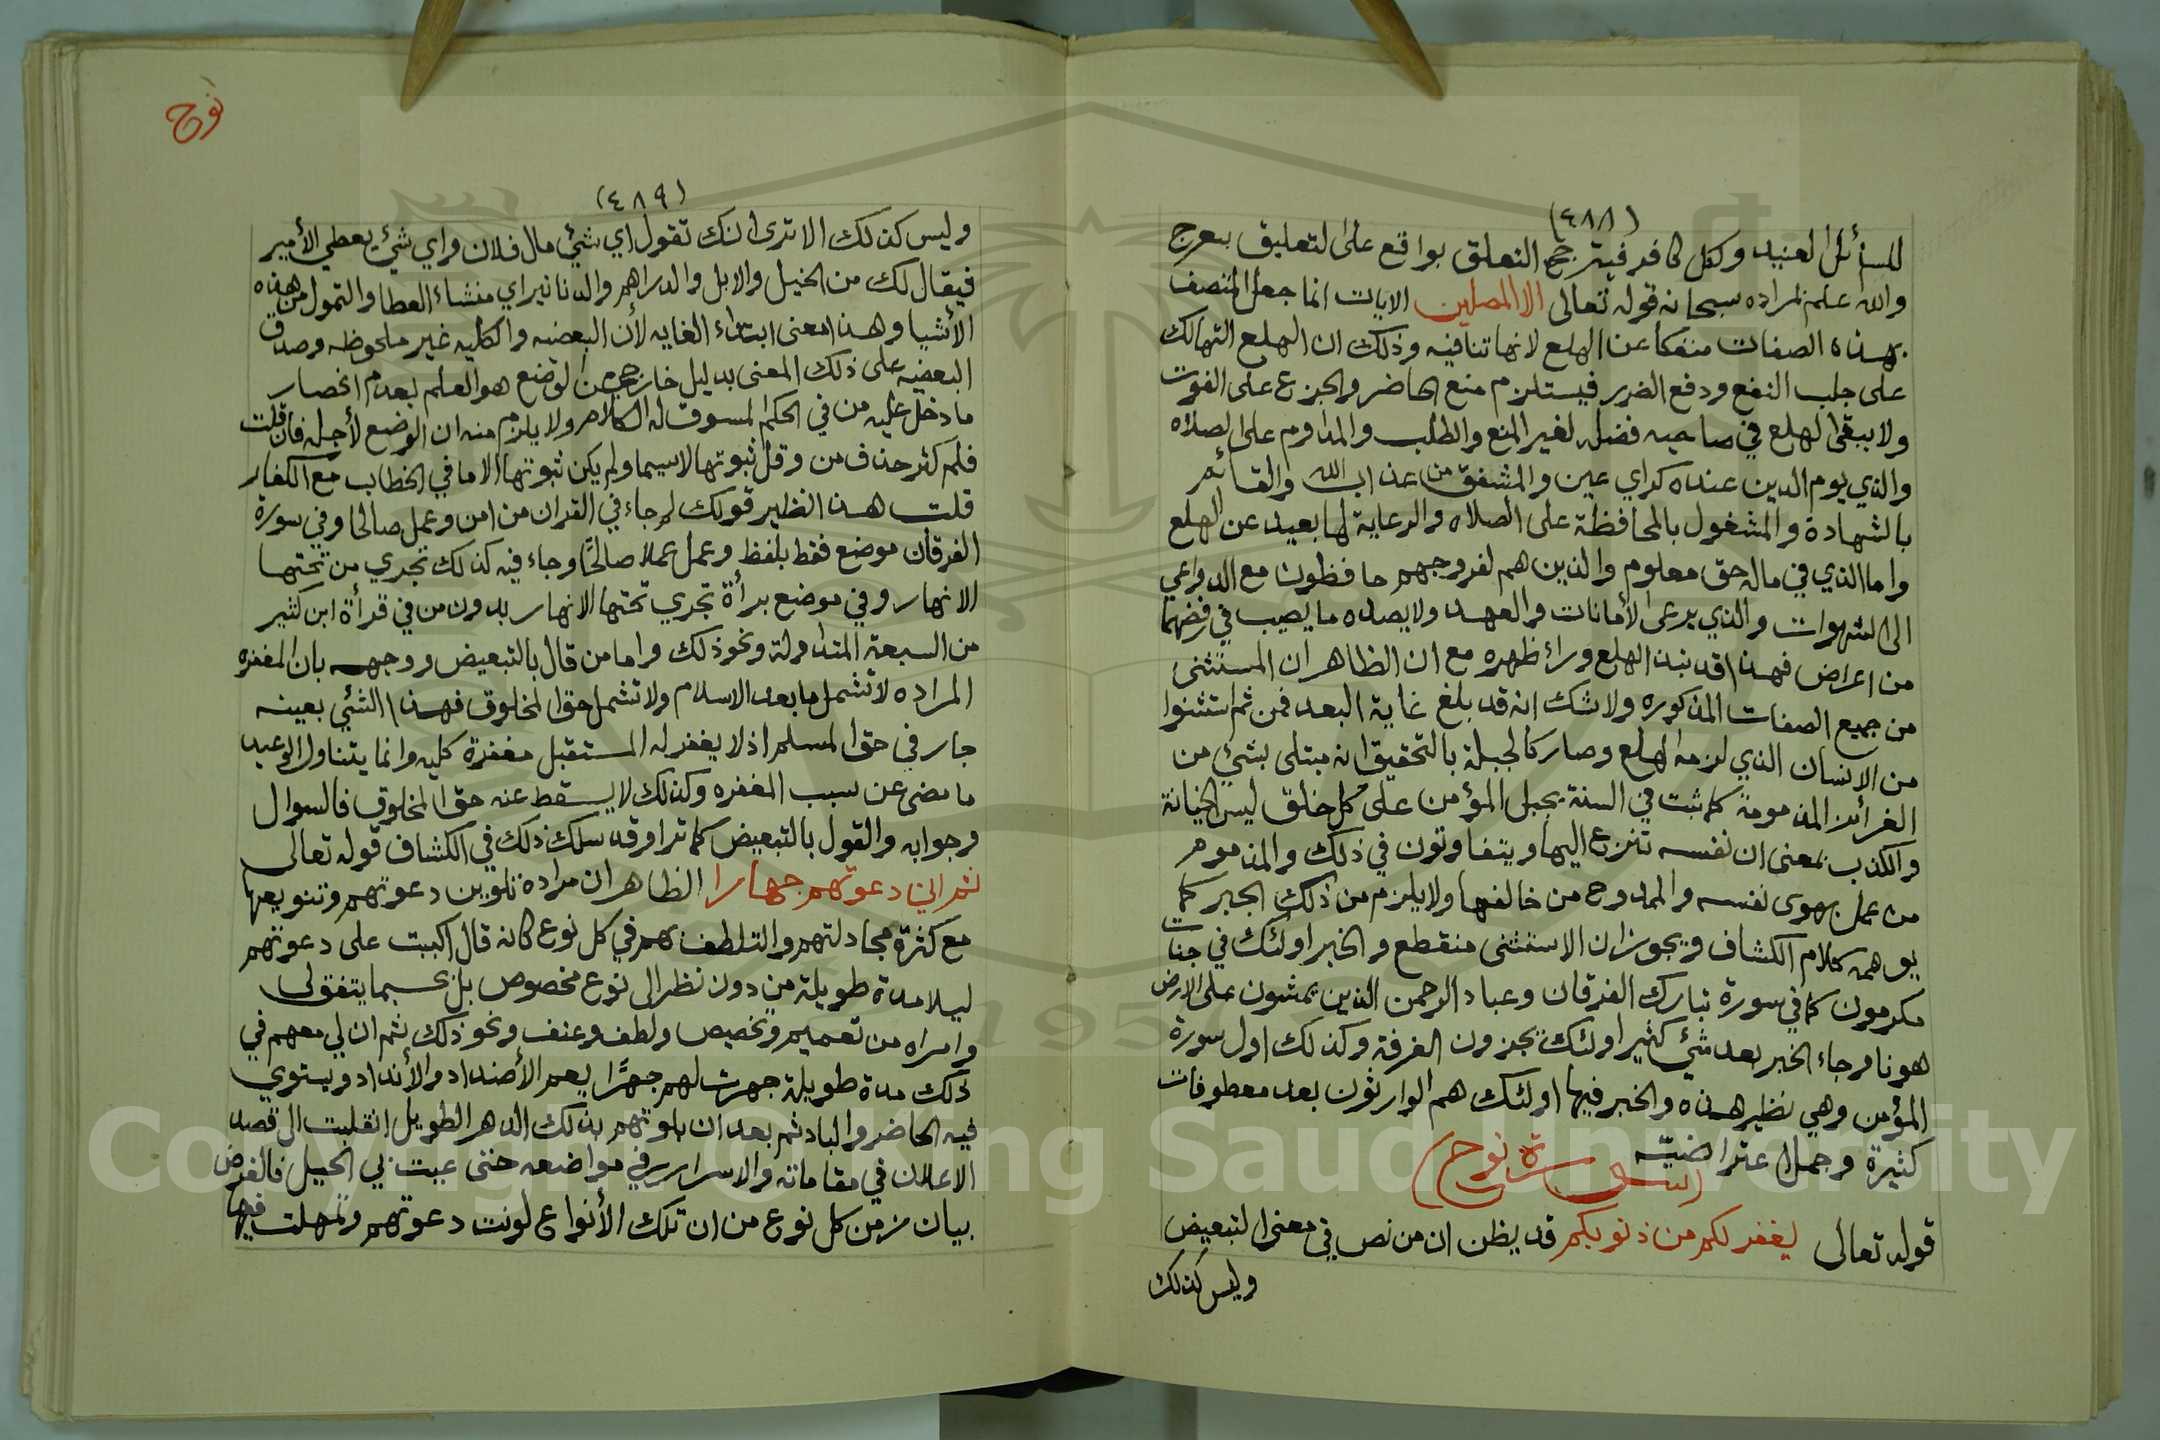 (٤٨٨)
للسائل العنيد ولكل كافر فيترجح التعلق بواقع على التعليق بمعرج
والله علم لمراده سبحانه قوله تعالى الا المصلين الايات انما جعل المتصف
بهذه الصفات منفكا عن الهلع لانها تنافيه وذلك ان الهلع التهالك
على جلب النفع ودفع الضرر فيستلزم منع الحاضر والجزع على الفوت
ولا يبقى الهلع في صاحبه فضل لغير المنع والطلب والمداوم على الصلاه
والذي يوم الدين عنده كراي عين والمشفق من عذاب الله والقائم
بالشهادة والمشغول بالمحافظة على الصلاه والرعاية لها بعيد عن الهلع
واما الذي في ماله حق معلوم والذين هم لفروجهم حافظون مع الدواعي
الى الشهوات والذي يرعى الأمانات والعهد ولا يصده ما يصيب في رفضهما
من اعراض فهذا قد نبذ الهلع وراء ظهره مع ان الظاهر ان المستثنى
من جميع الصفات المذكوره ولا شك انه قد بلغ غاية البعد فمن ثم استثنوا
من الانسان الذي لزمه الهلع وصار كالجبلة بالتحقيق انه مبتلى بشئ من
الغرائز المذمومة كما ثبت في السنة يجبل المؤمن على كل خلق ليس الخيانة
والكذب بمعنى ان نفسه تنزع اليها ويتفاوتون في ذلك والمذموم
من عمل بهوى نفسه والممدوح من خالفها ولا يلزم من ذلك الجبر كما
يوهمه كلام الكشاف ويجوز ان الاستثنى منقطع والخبر اولئك في جنات
مكرمون كما في سورة تبارك الفرقان وعباد الرحمن الذين يمشون على الارض
هونا وجاء الخبر بعد شئ كثير اولئك يجزون الغرفة وكذلك اول سورة
المؤمن وهي نظير هذه والخبر فيها اولئك هم الوارثون بعد معطوفات
كثيرة وجمل اعتراضيّه
(سورة نوح)
قوله تعالى يغفر لكم من ذنوبكم قد يظن ان من نص في معنى التبعيض
وليس كذلك
نوح
(٤٨٩)
وليس كذلك الا ترى انك تقول اي شئ مال فلان واي شئ يعطي الأمير
فيقال لك من الخيل والابل والدراهم والدنانير اي منشاء العطا والتمول من هذه
الأشيا وهذا معنى ابتداء الغايه لأن البعضيه والكليه غير ملحوظه وصدق
البعضيه على ذلك المعنى بدليل خارجي عن الوضع هو العلم بعدم انحصار
ما دخل عليه من في الحكم المسوق له الكلام ولا يلزم منه ان الوضع لأجله فان قلت
فلم كثر حذف من وقل ثبوتها لا سيما ولم يكن ثبوتها الا ما في الخطاب مع الكفار
قلت هذا نظير قولك لم جاء في القران من امن وعمل صالحا وفي سورة
الفرقان موضع فقط بلفظ وعمل عملا صالحًا وجاء فيه كذلك تجري من تحتها
الانهار وفي موضع براة تجري تحتها الانهار بدون من في قرأة ابن كثير
من السبعة المتداولة ونحو ذلك واما من قال بالتبعيض ووجهه بان المغفره
المراده لا تشمل ما بعد الاسلام ولا تشمل حق المخلوق فهذا الشئ بعينه
جار في حق المسلم اذ لا يغفر له المستقبل مغفرة كليه وانما يتناول الوعيد
ما مضى عن سبب المغفره وكذلك لا يسقط عنه حق المخلوق فالسوال
وجوابه والقول بالتبعيض كما ترا وقد سلك ذلك في الكشاف قوله تعالى
ثم اني دعوتهم جهارا الظاهر ان مراده تلوين دعوتهم وتنويعها
مع كثرة مجادلتهم والتلطف بهم في كل نوع كانه قال اكببت على دعوتهم
ليلا مدة طويلة من دون نظر الى نوع مخصوص بل بحسبما يتفق لي
واراه من تعميم وتخصيص ولطف وعنف ونحو ذلك ثم ان لي معهم في
ذلك مدة طويلة جهرت لهم جهرًا يعم الأضداد والأنداد ويستوي
فيه الحاضر والباد ثم بعد ان بلوتهم بذلك الدهر الطويل انقلبت الى قصد
الاعلان في مقاماته والاسرار في مواضعه حتى عيت بي الحيل فالغرض
بيان زمن كل نوع من ان تلك الأنواع لونت دعوتهم وتمهلت فيها